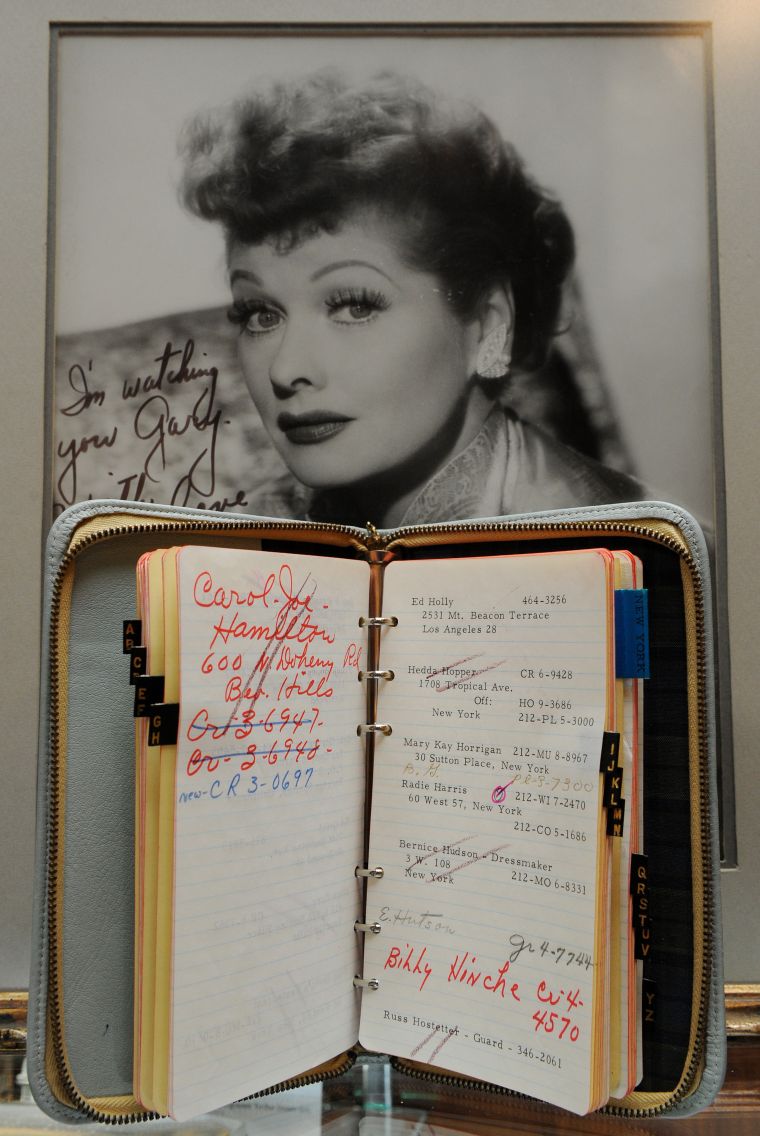 I'm watching
you Gary.
Love
A
B
C
E F
G
H
Carol-Joe-
Hamilton
600 N. Doheny Rd
Bev. Hills
Cr-3-6947-
Cr-3-6948-
new-CR 3-0697
Ed Holly 464-3256
2531 Mt. Beacon Terrace
Los Angeles 28
Hedda Hopper CR 6-9428
1708 Tropical Ave.
Off: HO 9-3686
New York 212-PL 5-3000
Mary Kay Horrigan 212-MU 8-8967
30 Sutton Place, New York
B.H. PL-3-7300
Radie Harris 212-WI 7-2470
60 West 57, New York
212-CO 5-1686
Bernice Hudson - Dressmaker
3 W. 108 212-MO 6-8331
New York
E. Hutson
gr 4-7744
Billy Hinche Cr 4-
4570
Russ Hostetter - Guard - 346-2061
NEW YORK
I
J
K
L
M
N
Q
R
S
T
U
V
Y Z